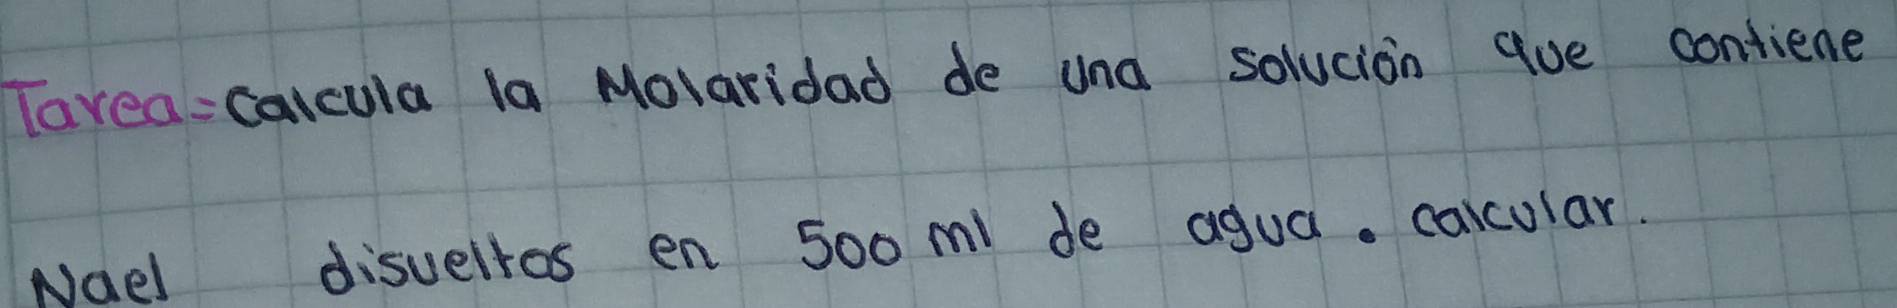 Tarea=Calcula la Molaridad de una solución que contiene
Nael disueltos en 500 ml de agua. calcular.